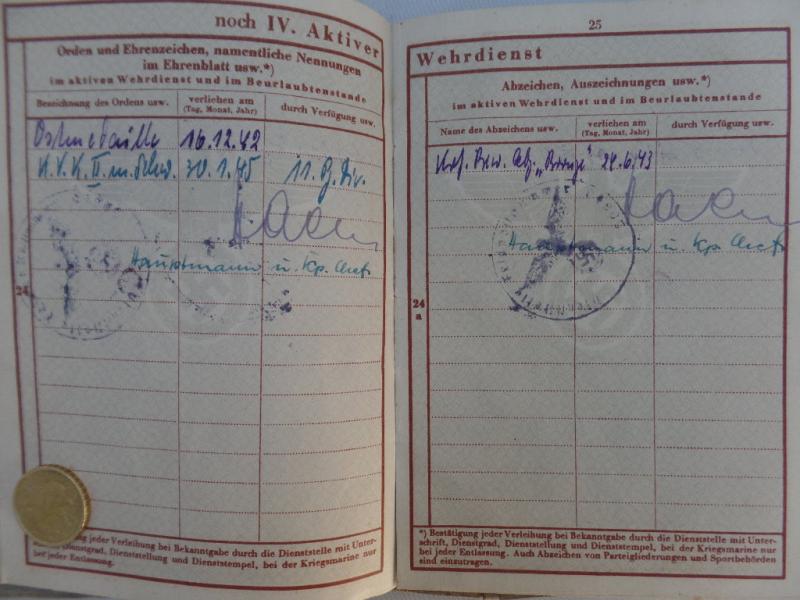 noch IV. Aktiver
Orden und Ehrenzeichen, namentliche Nennungen
im Ehrenblatt usw.*)
im aktiven Wehrdienst und im Beurlaubtenstande
Bezeichnung des Ordens usw.
verliehen am
(Tag, Monat, Jahr)
durch Verfügung usw.
Ostmedaille 16.12.42
K.V.K. II. m. Schw. 30.1.45 11. Div.
Hauptmann u. Kp. Chef
24
jeder Verleihung bei Bekanntgabe durch die Dienststelle mit Unter-
Dienstgrad, Dienststellung und Dienststempel, bei der Kriegsmarine nur
bei jeder Entlassung.
25
Wehrdienst
Abzeichen, Auszeichnungen usw.*)
im aktiven Wehrdienst und im Beurlaubtenstande
Name des Abzeichens usw.
verliehen am
(Tag, Monat, Jahr)
durch Verfügung usw.
Krf. Bew. Abz. „Bronze" 24.6.43
Hauptmann u. Kp. Chef
24
a
*) Bestätigung jeder Verleihung bei Bekanntgabe durch die Dienststelle mit Unter-
schrift, Dienstgrad, Dienststellung und Dienststempel, bei der Kriegsmarine nur
bei jeder Entlassung. Auch Abzeichen von Parteigliederungen und Sportbehörden
sind einzutragen.